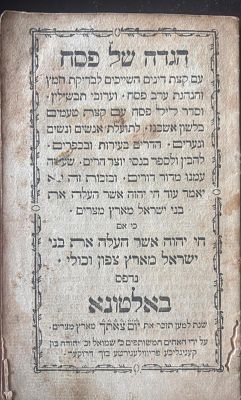 הגדה של פסח
עם קצת דינים השייכים לבדיקת חמץ
והנהגת ערב פסח · ועירובי תבשילין ·
וסדר לילי פסח עם קצת טעמים
בלשון אשכנז · לתועלת אנשים ונשים
ונערים · הדרים בעירות ובכפרים ·
להבין ולספר בנסי יוצר הרים · שעשה
עמנו מדור דורים · ובזכות זה
יאמר עוד חי יהוה אשר העלה את
בני ישראל מארץ מצרים ·
כי אם
חי יהוה אשר העלה את בני
ישראל מארץ צפון וכולי ·
נדפס
באלטונא
שנת למען תזכר את יום צאתך מארץ מצרים ·
על ידי האחים המשותפים כ״ שמואל וכ״ יהודה בון
קעניגליכע פריווילעגירטע בוך דרוקער ·